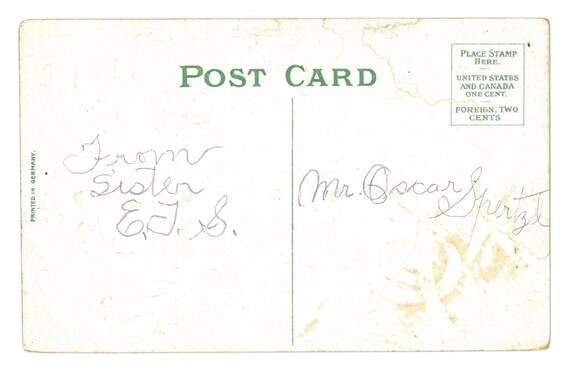 POST CARD
PLACE STAMP
HERE.
UNITED STATES
AND CANADA
ONE CENT.
FOREIGN, TWO
CENTS
PRINTED IN GERMANY.
From
sister
E.J. S.
Mr. Oscar
Spertzel